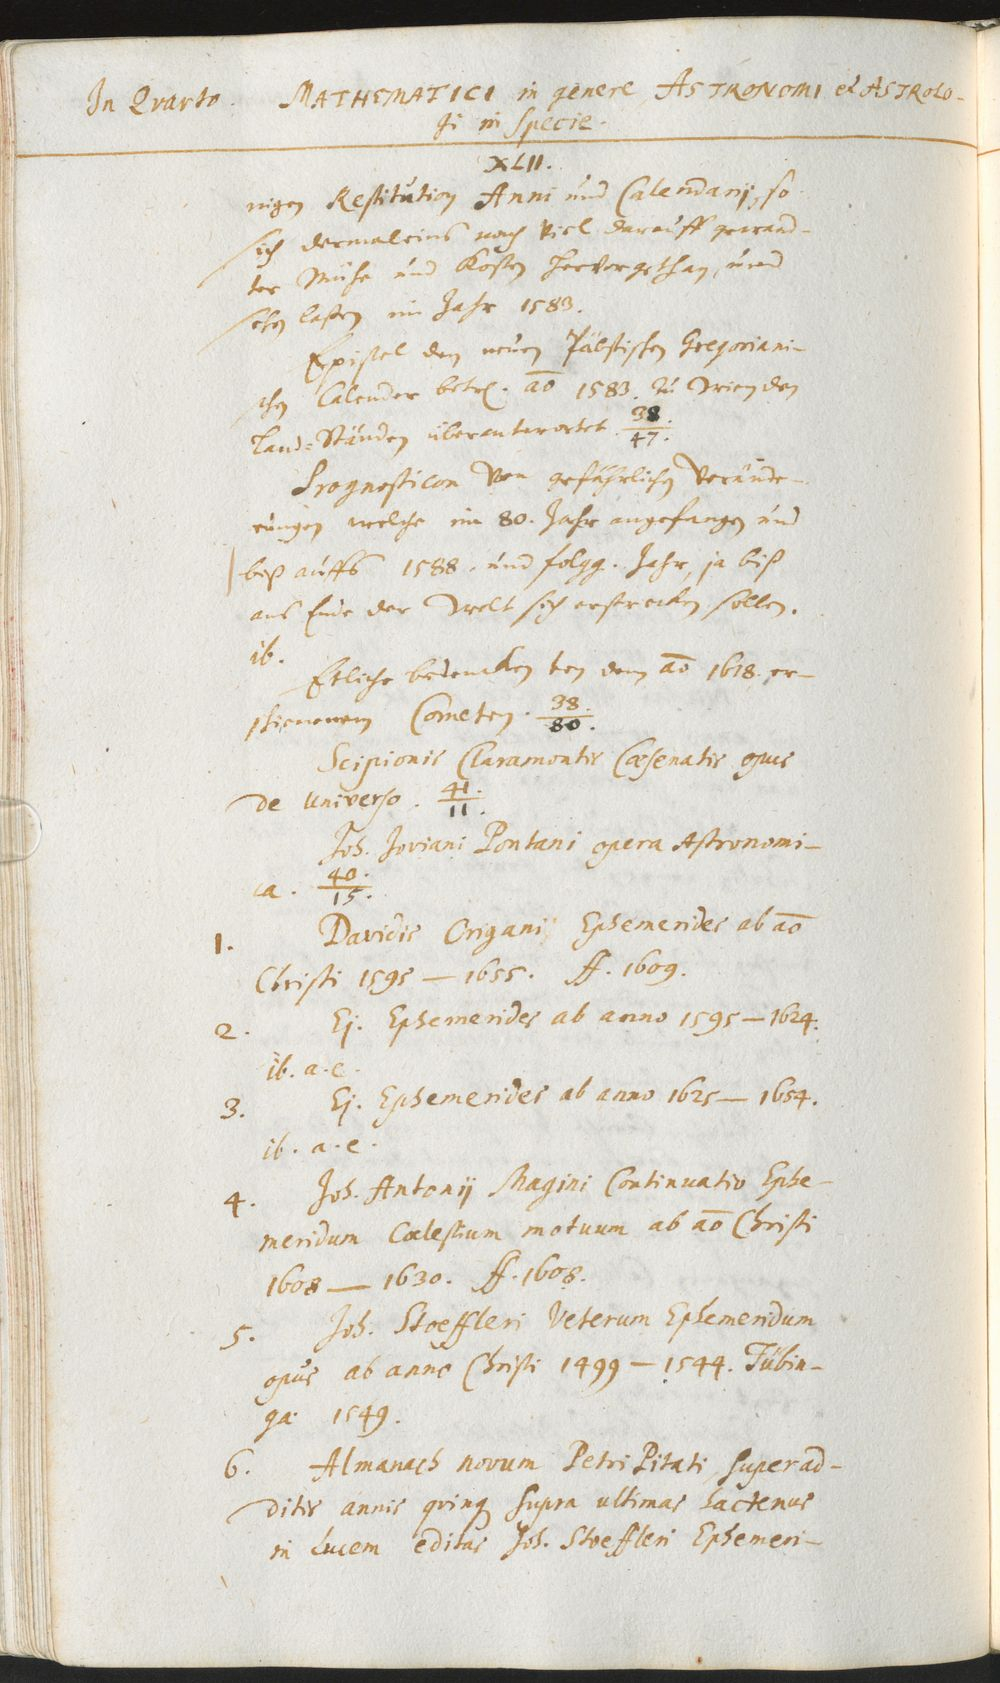 In Qvarto. MATHEMATICI in genere, ASTRONOMI et ASTROLO-
gi in specie.
XLII.
nigen Restitution Anni und Calendarij, so
sich dermaleins nach viel darauff gewand-
ter Mühe und Kosten hervorgethan, und
sehen lassen im Jahr 1583.
Epistel den neuen Päbstischen Gregoriani-
schen Calender betr. aō 1583. zu Wien den
Land-Ständen überantwortet. 38./47.
Prognosticon Von gefährlichen Verände-
rungen welche im 80. Jahr angefangen und
biß auffs 1588. und folgg. Jahr, ja biß
ans Ende der Welt sich erstrecken sollen.
ib.
Etliche bedencken von dem aō 1618. er-
schienenen Cometen. 38./80.
Scipionis Claramontis Cæsenatis opus
de Universo. 41./11.
Joh. Joviani Pontani opera Astronomi-
ca. 40./15.
1. Davidis Origani Ephemerides ab aō
Christi 1595 — 1655. ff. 1609.
2. Ej. Ephemerides ab anno 1595 — 1624.
ib. a. e.
3. Ej. Ephemerides ab anno 1625 — 1654.
ib. a. e.
4. Joh. Antonij Magini Continuatio Ephe-
meridum Cœlestium motuum ab aō Christi
1608 — 1630. ff. 1608.
5. Joh. Stoeffleri Veterum Ephemeridum
opus ab anno Christi 1499 — 1544. Tübin-
gæ 1549.
6. Almanach novum Petri Pitati, superad-
ditis annis qvinq supra ultimas hactenus
in lucem editas Joh. Stoeffleri Ephemeri-